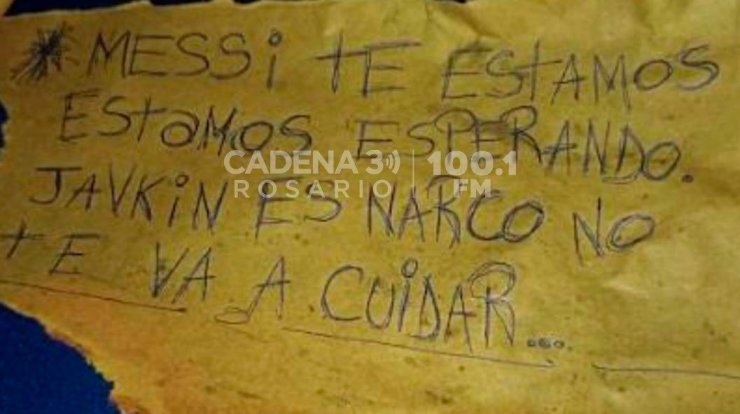 *MESSi tE EStAMOS
EStaMOS ESPERANDO.
CADENA 3 100.1
ROSARIO FM
JAVKiN ES NARCO NO
tE VA A CUiDAR...